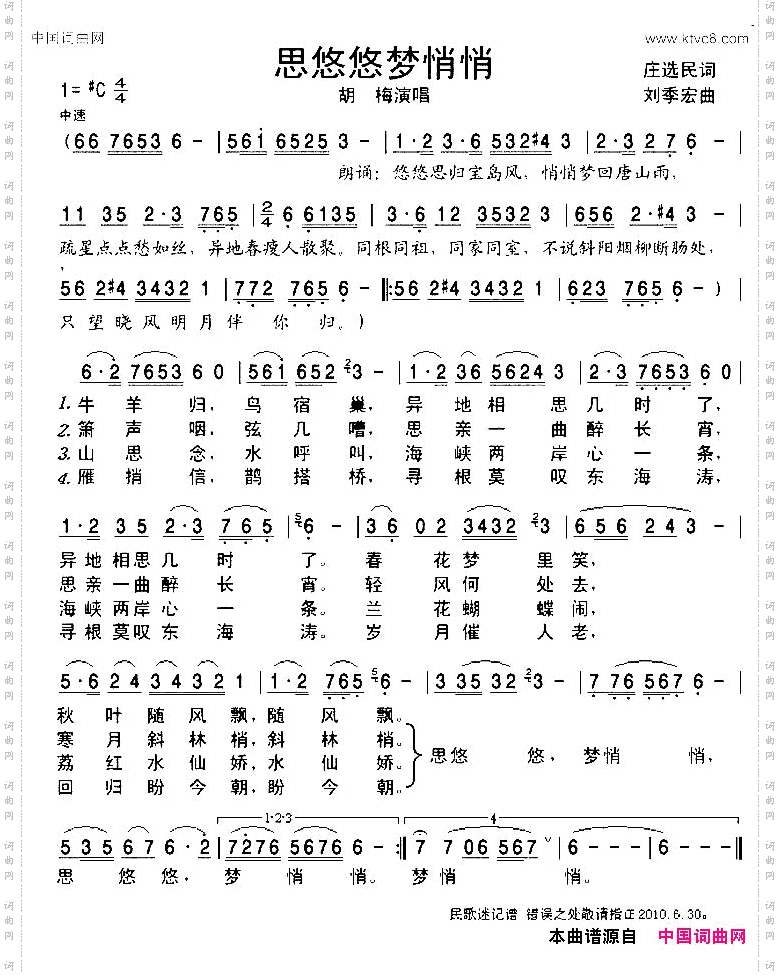 中国词曲网
www.ktvc8.com
思悠悠梦悄悄
1= #C 4/4
胡 梅演唱
庄选民词
刘季宏曲
中速
(66 7653 6 - | 561 6525 3 - | 1·2 3·6 532#4 3 | 2·3 27 6 - |
朗诵：悠悠思归宝岛风，悄悄梦回唐山雨，
11 35 2·3 765 | 2/4 6 6135 | 3·6 12 3532 3 | 656 2·#4 3 - |
疏星点点愁如丝，异地春瘦人散聚。同根同祖，同家同室，不说斜阳烟柳断肠处，
56 2#4 3432 1 | 772 765 6 - ‖: 56 2#4 3432 1 | 623 765 6 - ) |
只望晓风明月伴 你 归。)
6·2 7653 6 0 | 561 652 3 - | 1·2 36 5624 3 | 2·3 7653 6 0 |
1.牛 羊 归，鸟 宿 巢，异 地 相 思 几 时 了，
2.箫 声 咽，弦 几 嘈，思 亲 一 曲 醉 长 宵，
3.山 思 念，水 呼 叫，海 峡 两 岸 心 一 条，
4.雁 捎 信，鹊 搭 桥，寻 根 莫 叹 东 海 涛，
1·2 35 2·3 765 | 6 - | 36 02 3432 3 | 656 243 - |
异地相思几 时 了。春 花 梦 里 笑，
思亲一曲醉 长 宵。轻 风 何 处 去，
海峡两岸心 一 条。兰 花 蝴 蝶 闹，
寻根莫叹东 海 涛。岁 月 催 人 老，
5·6 24 3432 1 | 1·2 765 6 - | 33 532 3 - | 7 76 567 6 - |
秋 叶 随 风 飘，随 风 飘。
寒 月 斜 林 梢，斜 林 梢。
荔 红 水 仙 娇，水 仙 娇。
回 归 盼 今 朝，盼 今 朝。
思悠 悠，梦悄 悄，
1·2·3
4
535 67 6·2 | 7276 5676 6 - :‖ 7 706 567 | 6 - - - | 6 - - - ‖
思 悠 悠，梦 悄 悄。梦悄 悄。
民歌迷记谱 错误之处敬请指正2010.6.30。
本曲谱源自 中国词曲网